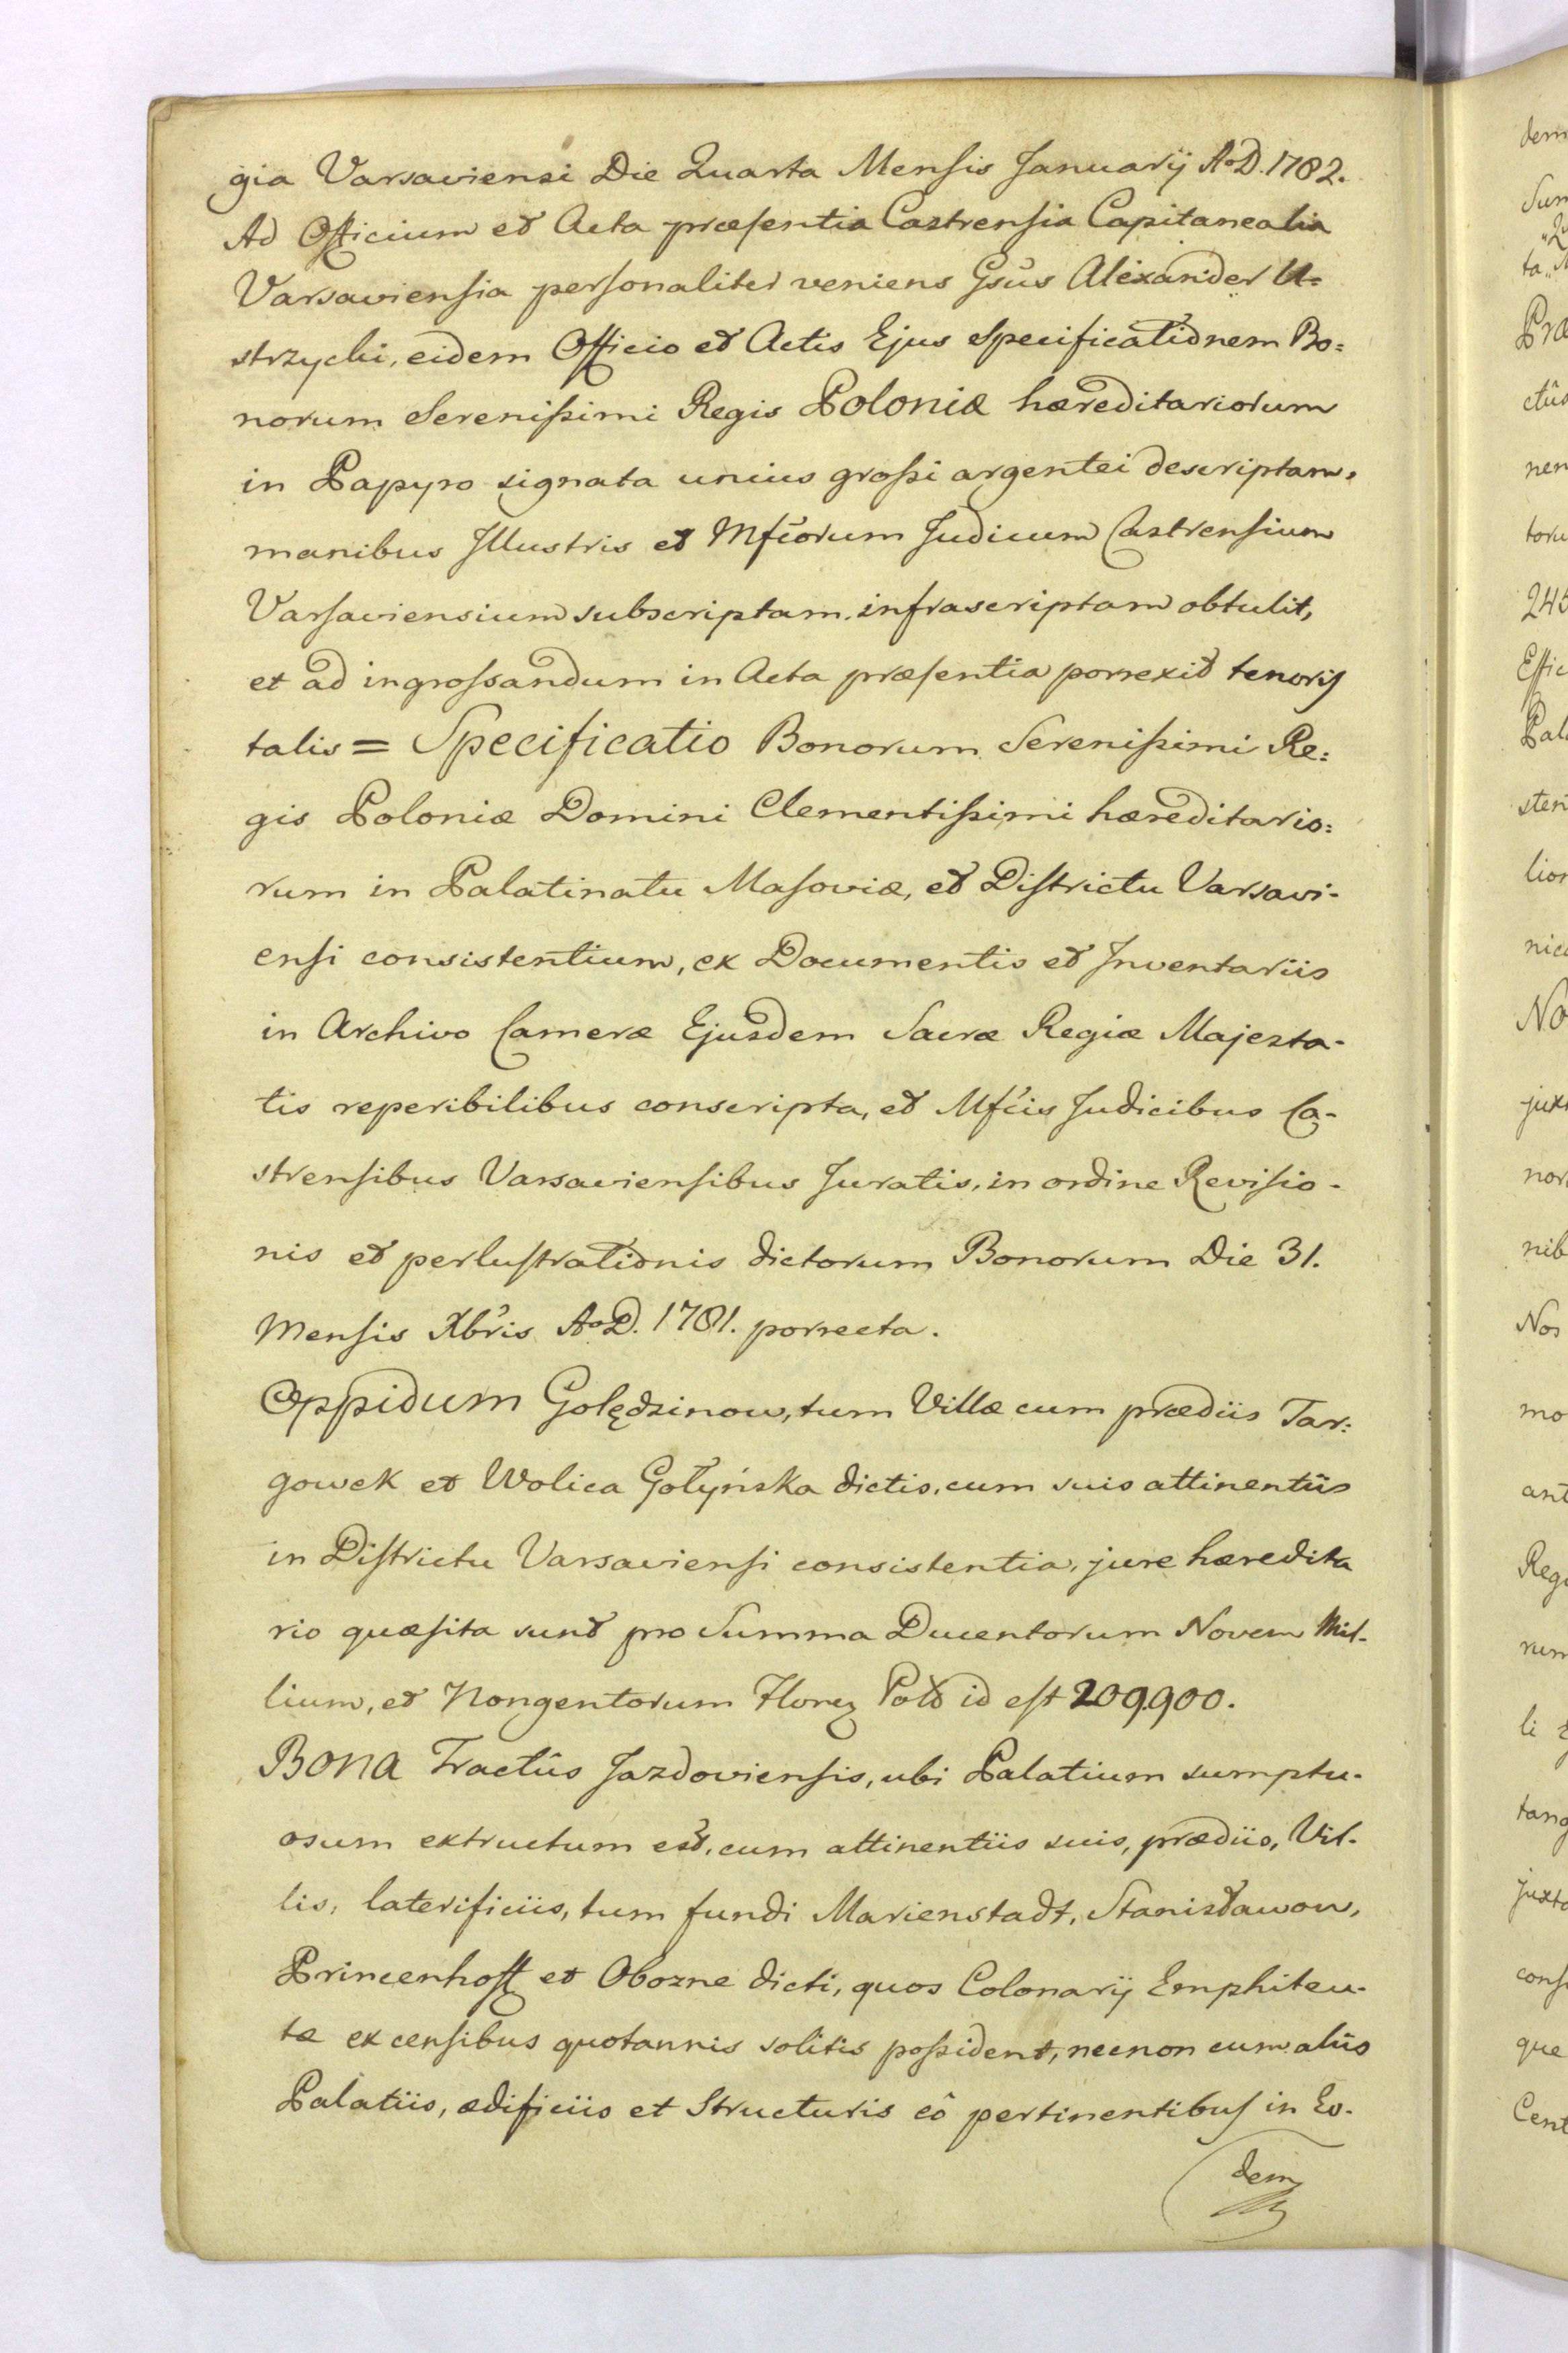 gia Varsaviensi Die Quarta Mensis Januarij AoD. 1782.
Ad Officium et Acta præsentia Castrensia Capitanealia
Varsaviensia personaliter veniens Gsus Alexander U=
strzycki, eidem Officio et Actis Ejus Specificationem Bo=
norum Serenissimi Regis Poloniæ hæreditariorum
in Papyro signata unius grossi argentei descriptam,
manibus Illustris et Mfcorum Judicum Castrensium
Varsaviensium subscriptam, infrascriptam obtulit,
et ad ingrossandum in Acta præsentia porrexit tenoris
talis = Specificatio Bonorum Serenissimi Re=
gis Poloniæ Domini Clementissimi hæreditario=
rum in Palatinatu Masoviæ, et Districtu Varsavi-
ensi consistentium, ex Documentis et Inventariis
in Archivo Cameræ Ejusdem Sacræ Regiæ Majesta-
tis reperibilibus conscripta, et Mfcis Judicibus Ca-
strensibus Varsaviensibus Juratis, in ordine Revisio-
nis et perlustrationis dictorum Bonorum Die 31.
Mensis Xbris AoD. 1781. porrecta.
Oppidum Golędzinow, tum Villæ cum prædiis Tar=
gowek et Wolica Gołyńska dictis, cum suis attinentiis
in Districtu Varsaviensi consistentia, jure hæredita
rio quæsita sunt pro Summa Ducentorum Novem Mil-
lium, et Nongentorum Florez Pold id est 209900.
Bona Tractûs Jazdoviensis, ubi Palatium sumptu-
osum extructum est, cum attinentiis suis, prædiis, Vil-
lis, laterificiis, tum fundi Marienstadt, Stanisławow,
Princenhoff et Obozne dicti, quos Colonarij Emphiteu-
tæ ex censibus quotannis solitis possident, necnon cum aliis
Palatiis, ædificiis et Structuris eô pertinentibus in Eo-
dem
dem
Sum
ta
Præ
ctûs
nem
toru
245
Effic
Pal
sten
lion
nico
No
jux
nor
nib
Nos
mo
ant
Regi
rum
li
tang
juxta
cons
que
Cent